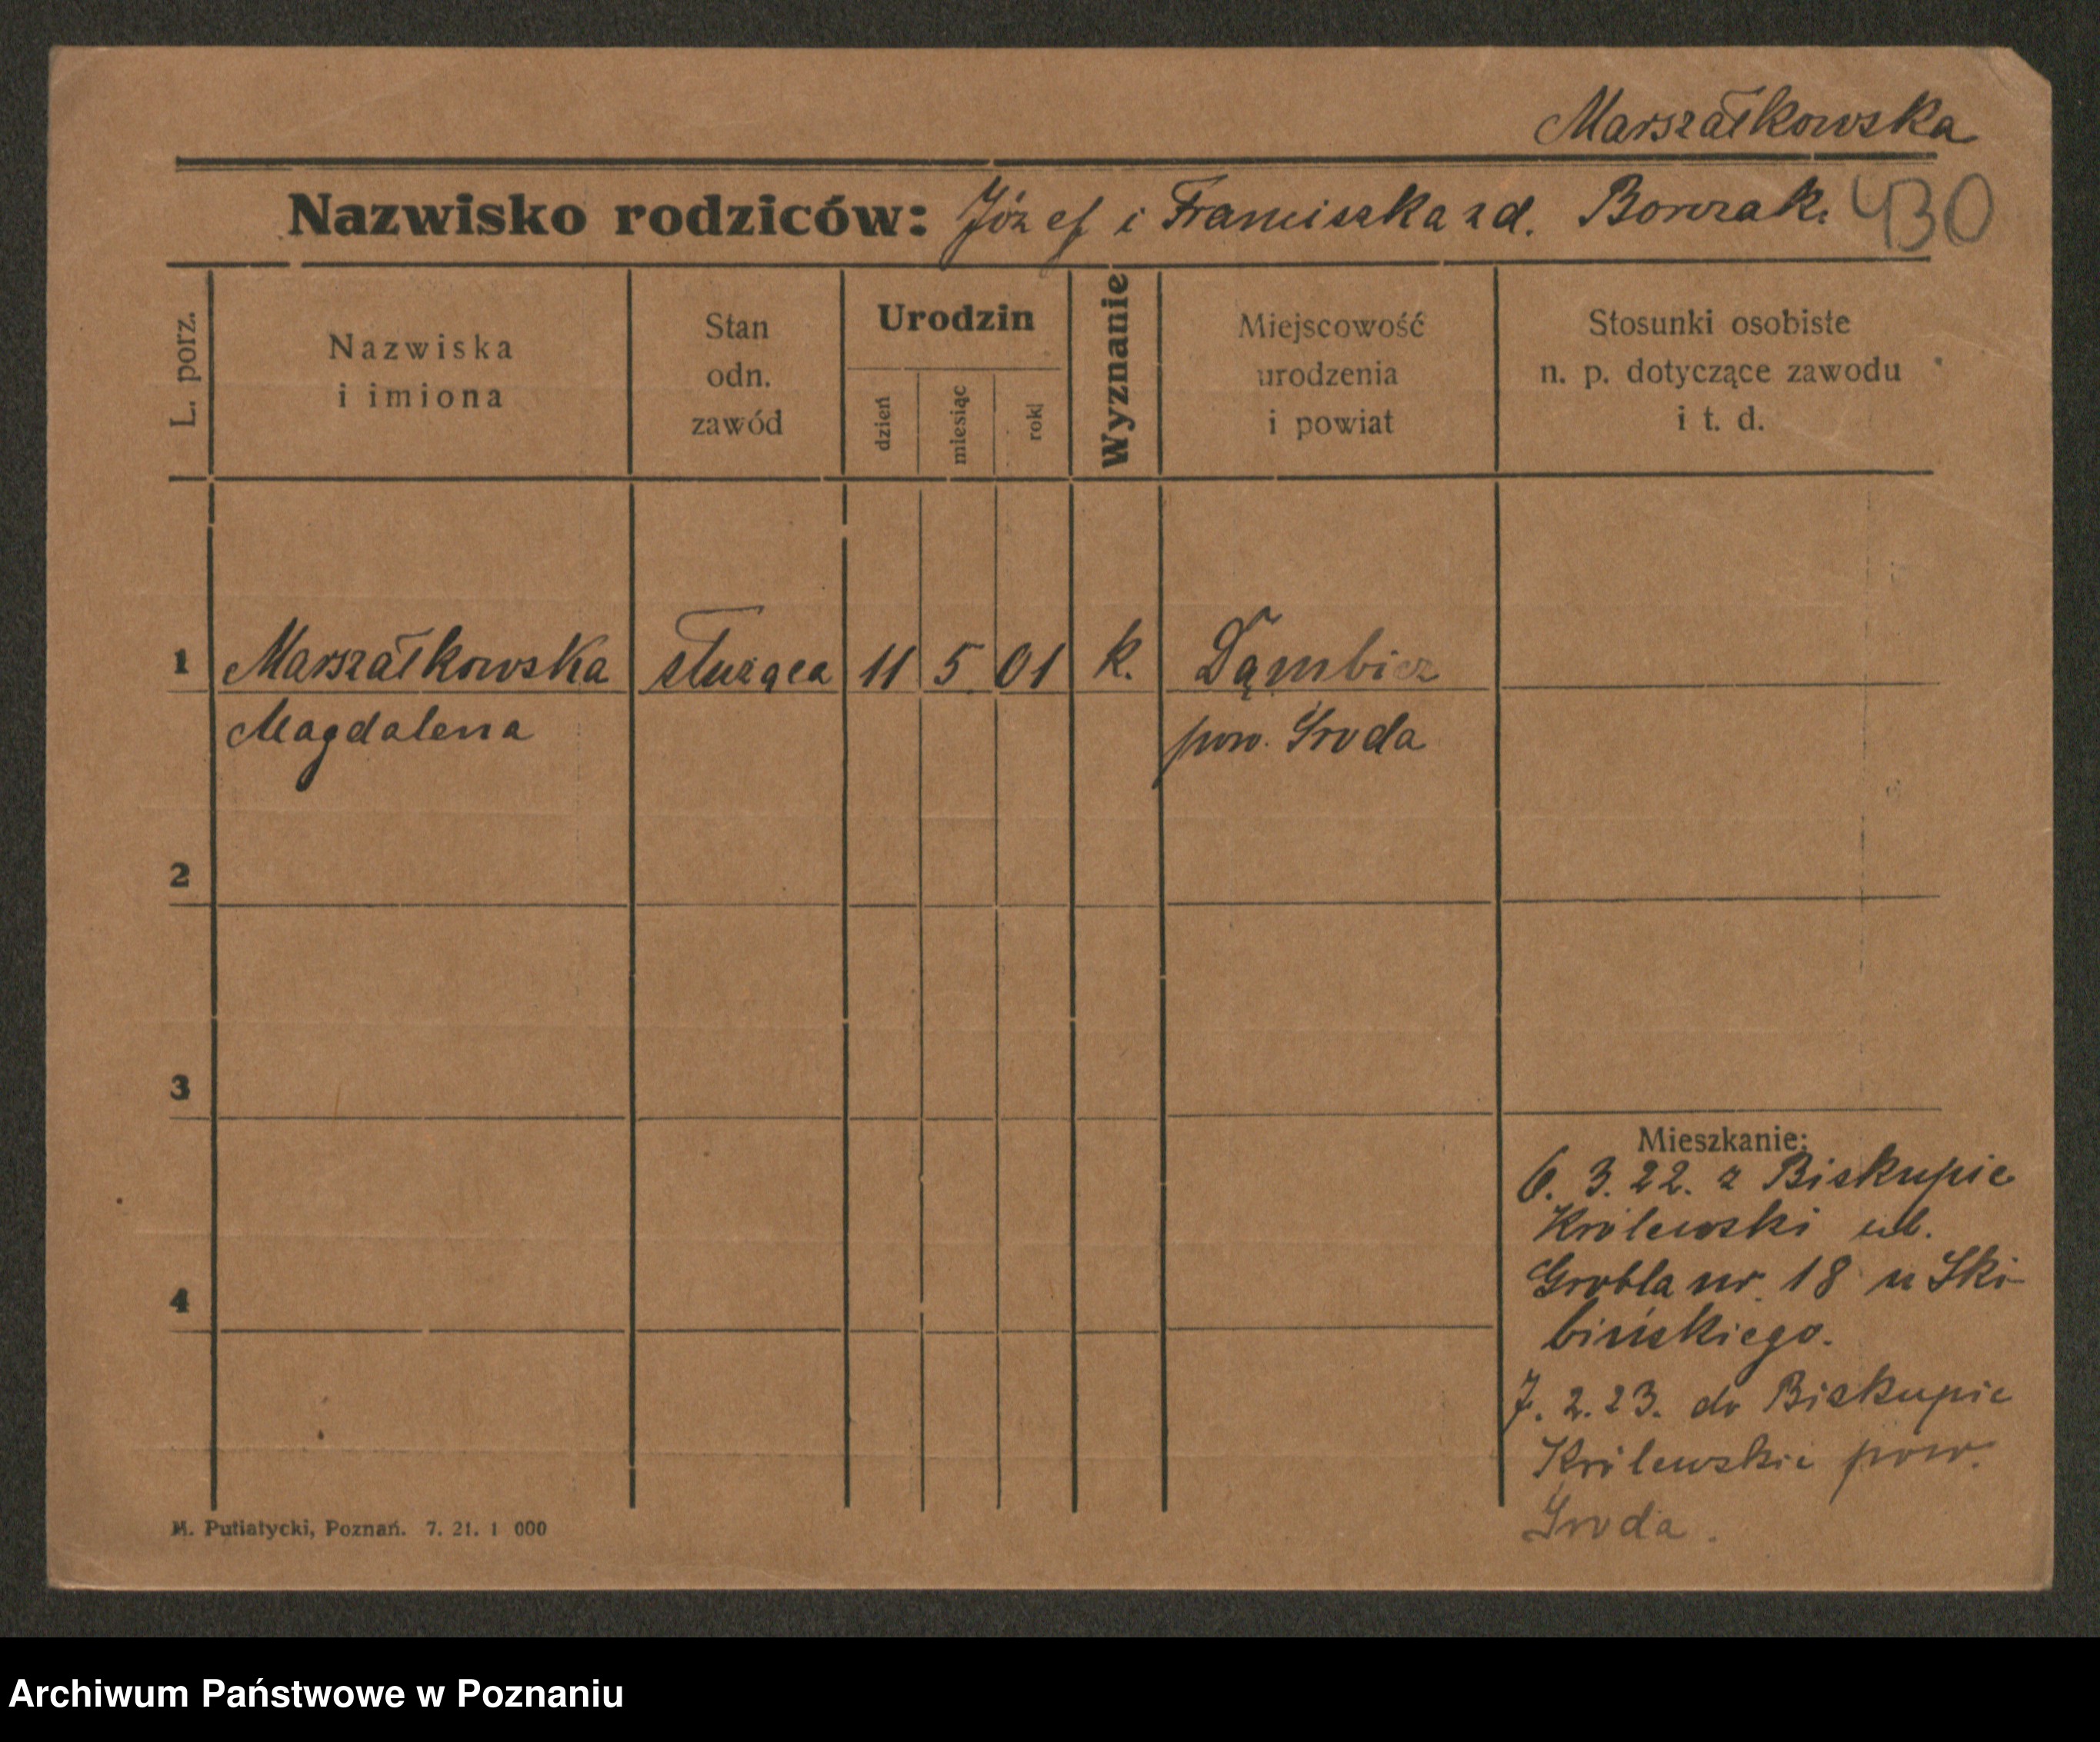 Marszałkowska
Nazwisko rodziców: Józef i Franciszka z d. Borczak. 430
L. porz.
Nazwiska
i imiona
Stan
odn.
zawód
Urodzin
dzień
miesiąc
rok
Wyznanie
Miejscowość
urodzenia
i powiat
Stosunki osobiste
n. p. dotyczące zawodu
i t. d.
1 Marszałkowska służąca 11 5 01 k. Dąmbicz
Magdalena pow. Środa
2
3
Mieszkanie:
6. 3. 22. z Biskupie
Królewski ul.
Grobla nr. 18 u Ski-
bińskiego.
4
7. 2. 23. do Biskupie
Królewskie pow.
Środa.
M. Putiatycki, Poznań. 7. 21. 1 000
Archiwum Państwowe w Poznaniu